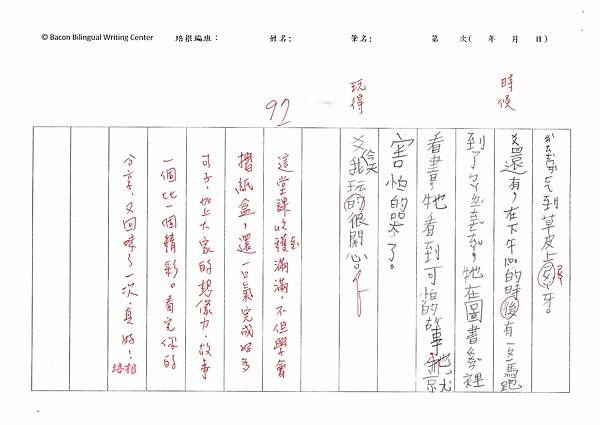 © Bacon Bilingual Writing Center 培根編班： 姓名： 筆名： 第 次( 年 月 日)
到草皮上
牙。
時候
還有，在下午1:00的時後有一隻馬跑
到了ㄕ
牠在圖書
裡
看書，牠看到可怕的故事 牠就
害怕的哭了。
玩得
我玩的很開心。
92
這堂課收穫滿滿，不但學會
摺紙盒，還一口氣完成好多
句子，加上大家的想像力，故事
一個比一個精彩。看完你的
分享，又回味了一次，真好！
培根